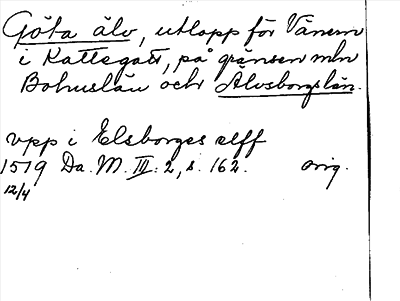 Göta älv, utlopp för Vänern
i Kattegatt, på gränsen mln
Bohuslän och Älvsborgslän.
upp i Elsborges elff
1519 Da. M. III: 2, s. 162. orig.
12/4